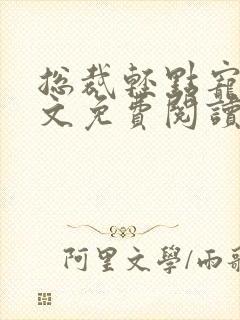 总裁轻點寵
文免費閱讀
阿里文學/雨歌